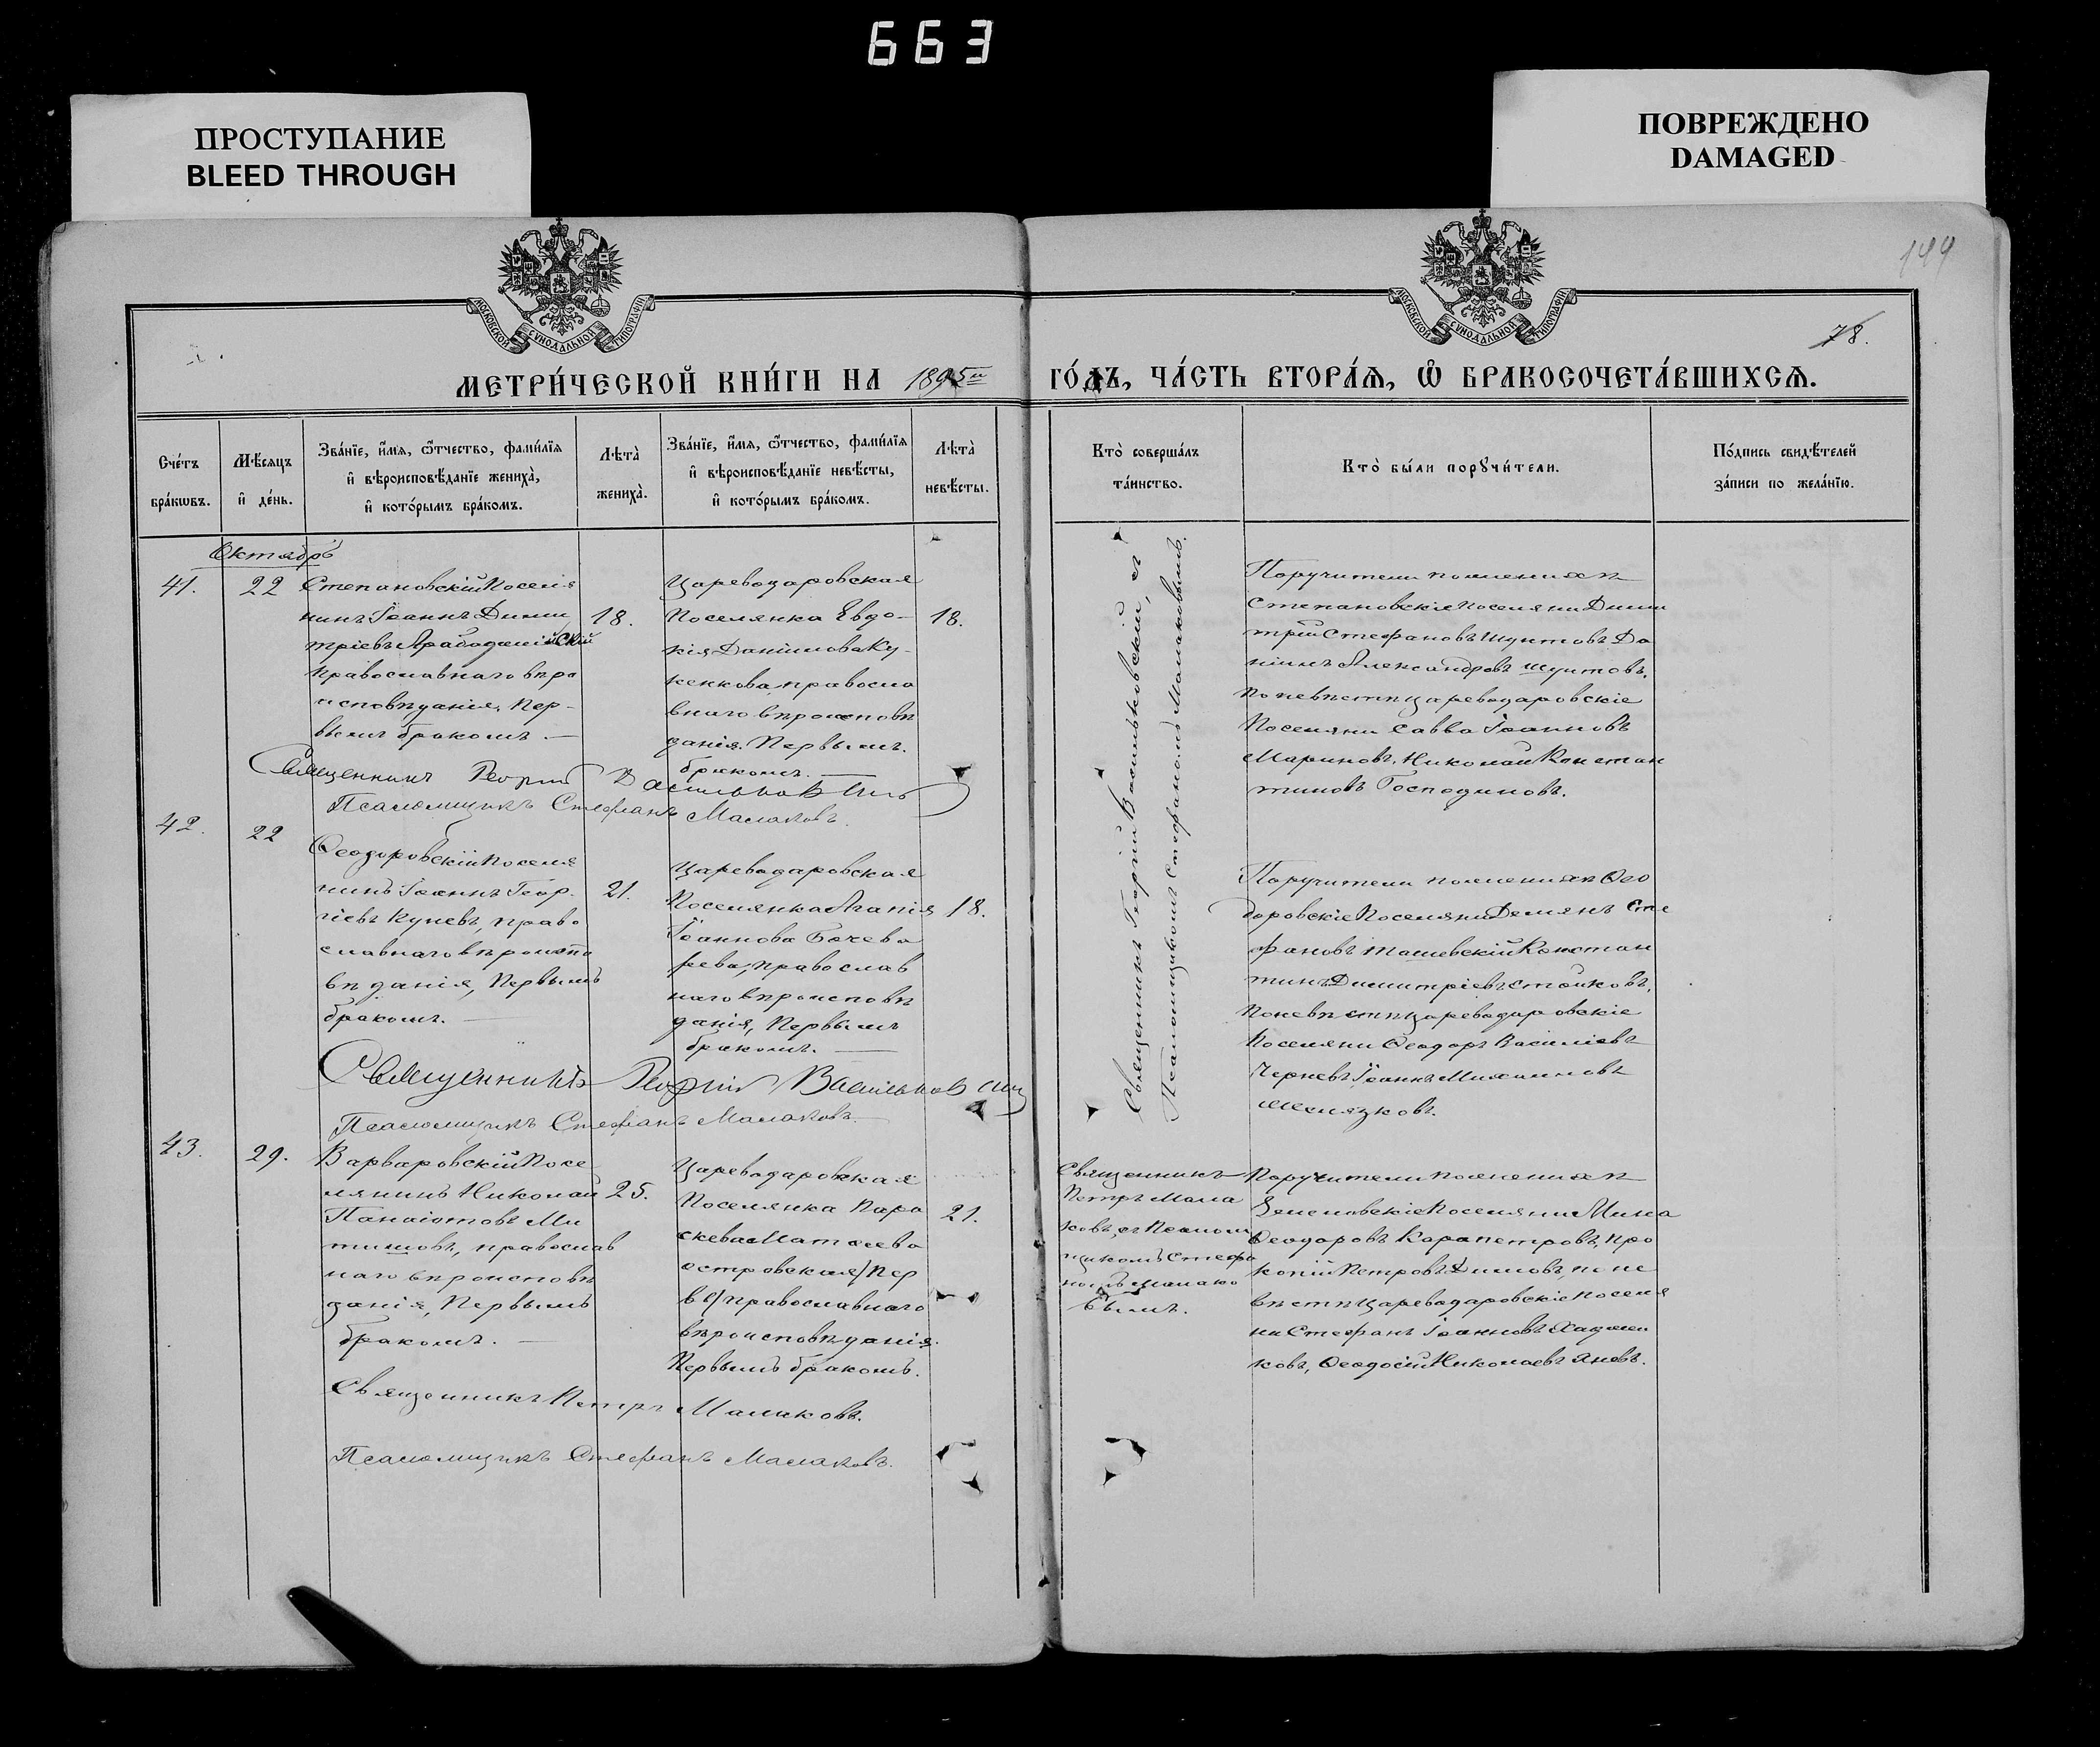 663
ПРОСТУПАНИЕ
BLEED THROUGH
ПОВРЕЖДЕНО
DAMAGED
МОСКОВСКОЙ СѴНОДАЛЬНОЙ ТИПОГРАФІИ
МОСКОВСКОЙ СѴНОДАЛЬНОЙ ТИПОГРАФІИ
78.
МЕТРИ́ЧЕСКОЙ КНИ́ГИ НА 1895й ГО́ДЪ, ЧА́СТЬ ВТОРА́Ѧ, Ѽ БРАКОСОЧЕТА́ВШИХСѦ.
Сче́тъ
бра́кѡвъ.
Мѣ́сѧцъ
и҆ де́нь.
Зва́нїе, и҆́мѧ, ѻ҆́тчество, фами́лїѧ
и҆ вѣроисповѣ́данїе жениха̀,
и҆ кото́рымъ бра́комъ.
Лѣ́та̀
жениха̀.
Зва́нїе, и҆́мѧ, ѻ҆́тчество, фами́лїѧ
и҆ вѣроисповѣ́данїе невѣ́сты,
и҆ кото́рымъ бра́комъ.
Лѣ́та̀
невѣ́сты.
Кто̀ соверша́лъ
та́инство.
Кто̀ бы́ли порꙋчи́тели.
По́дпись свидѣ́телей
за́писи по жела́нїю.
Октябрь
41.
22
Степановскій Поселя
нинъ Іоаннъ Дими
тріевъ
православнаго вѣро
исповѣданія, Пер-
вымъ бракомъ. —
18.
Цареводаровская
Поселянка Евдо-
кія Даніилова Ку-
кенкова, правосла
внаго вѣроисповѣ
данія, Первымъ.
бракомъ. —
18.
Священникъ Георгій Васильковскій, съ
Псаломщикомъ Стефаномъ Малаковымъ.
Поручители по женихѣ
Степановскіе Поселяни Дими
трій Стефановъ Шуитовъ, Да
ніилъ Александровъ Шуитовъ,
По невѣстѣ Цареводаровскіе
Поселяни Савва Іоанновъ
Мариновъ, Николай Констан
тиновъ Господиновъ.
Священникъ Георгій Васильковскій
Псаломщикъ Стефанъ Малаковъ.
42.
22
Ѳеодоровскій Поселя
нинъ Іоаннъ Геор-
гіевъ Куневъ, право
славнаго вѣроиспо
вѣданія, Первымъ
бракомъ. —
21.
Цареводаровская
Поселянка Агапія
Іоаннова Бачева
рева, православ
наго вѣроисповѣ
данія, Первымъ
бракомъ. —
18.
Поручители по женихѣ Ѳео
доровскіе Поселяни Демянъ Сте
фановъ Ташевскій, Констан
тинъ Димитріевъ Стойковъ,
По невѣстѣ Цареводаровскіе
Поселяни Ѳеодоръ Василіевъ
Черневъ, Іоаннъ Михаиловъ
Желязковъ.
Священникъ Георгій Васильковскій
Псаломщикъ Стефанъ Малаковъ.
43.
29.
Варваровскій Посе
лянинъ Николай
Панаіотовъ Ми
тишовъ, православ
наго вѣроисповѣ
данія, Первымъ
бракомъ. —
25.
Цареводаровская
Поселянка Пара
скева Матѳеева
островская/Пер
ва/православнаго
вѣроисповѣданія.
Первымъ бракомъ.
21.
Священникъ
Петръ Мала
ковъ, съ Псалом
щикомъ Стефа
номъ Малако
вымъ.
Поручители по женихѣ
Зеленовскіе Поселяни Мина
Ѳеодоровъ Карапетровъ, Про
копій Петровъ Димовъ, по не
вѣстѣ Цареводаровскіе поселя
ни Стефанъ Іоанновъ Хаджи
ковъ, Ѳеодосій Николаевъ Яневъ.
Священникъ Петръ Малаковъ.
Псаломщикъ Стефанъ Малаковъ.